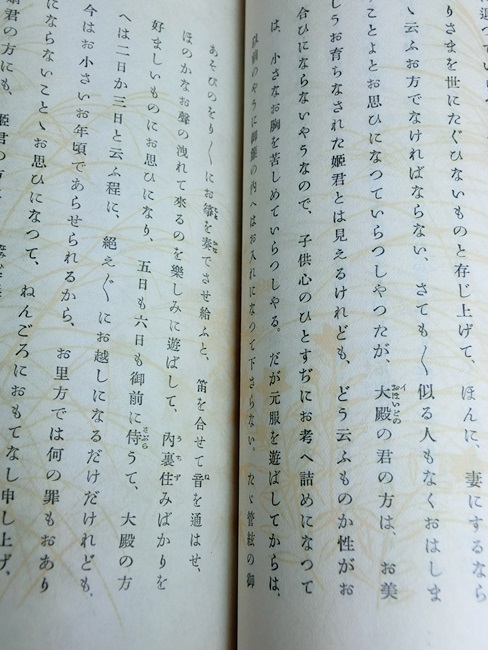 りさまを世にたぐひないものと存じ上げて、ほんに、妻にするなら
云ふお方でなければならない、さても〳〵似る人もなくおはしま
ことよとお思ひになつていらつしやつたが、大殿の君の方は、お美
しうお育ちなされた姫君とは見えるけれども、どう云ふものか性がお
合ひにならないやうなので、子供心のひとすぢにお考へ詰めになつて
は、小さなお胸を苦しめていらつしやる。だが元服を遊ばしてからは、
のやうに御簾の内へはお入れになつて下さらない。たゞ管絃の御
あそびのをり〳〵にお箏を奏でさせ給ふと、笛を合せて音を通はせ、
ほのかなお聲の洩れて來るのを樂しみに遊ばして、內裏住みばかりを
好ましいものにお思ひになり、五日も六日も御前に侍うて、大殿の方
へは二日か三日と云ふ程に、絕え〴〵にお越しになるだけだけれども、
今はお小さいお年頃であらせられるから、お里方では何の罪もおあり
にならないことゝお思ひになつて、ねんごろにおもてなし申し上げ、
姬君の方にも、